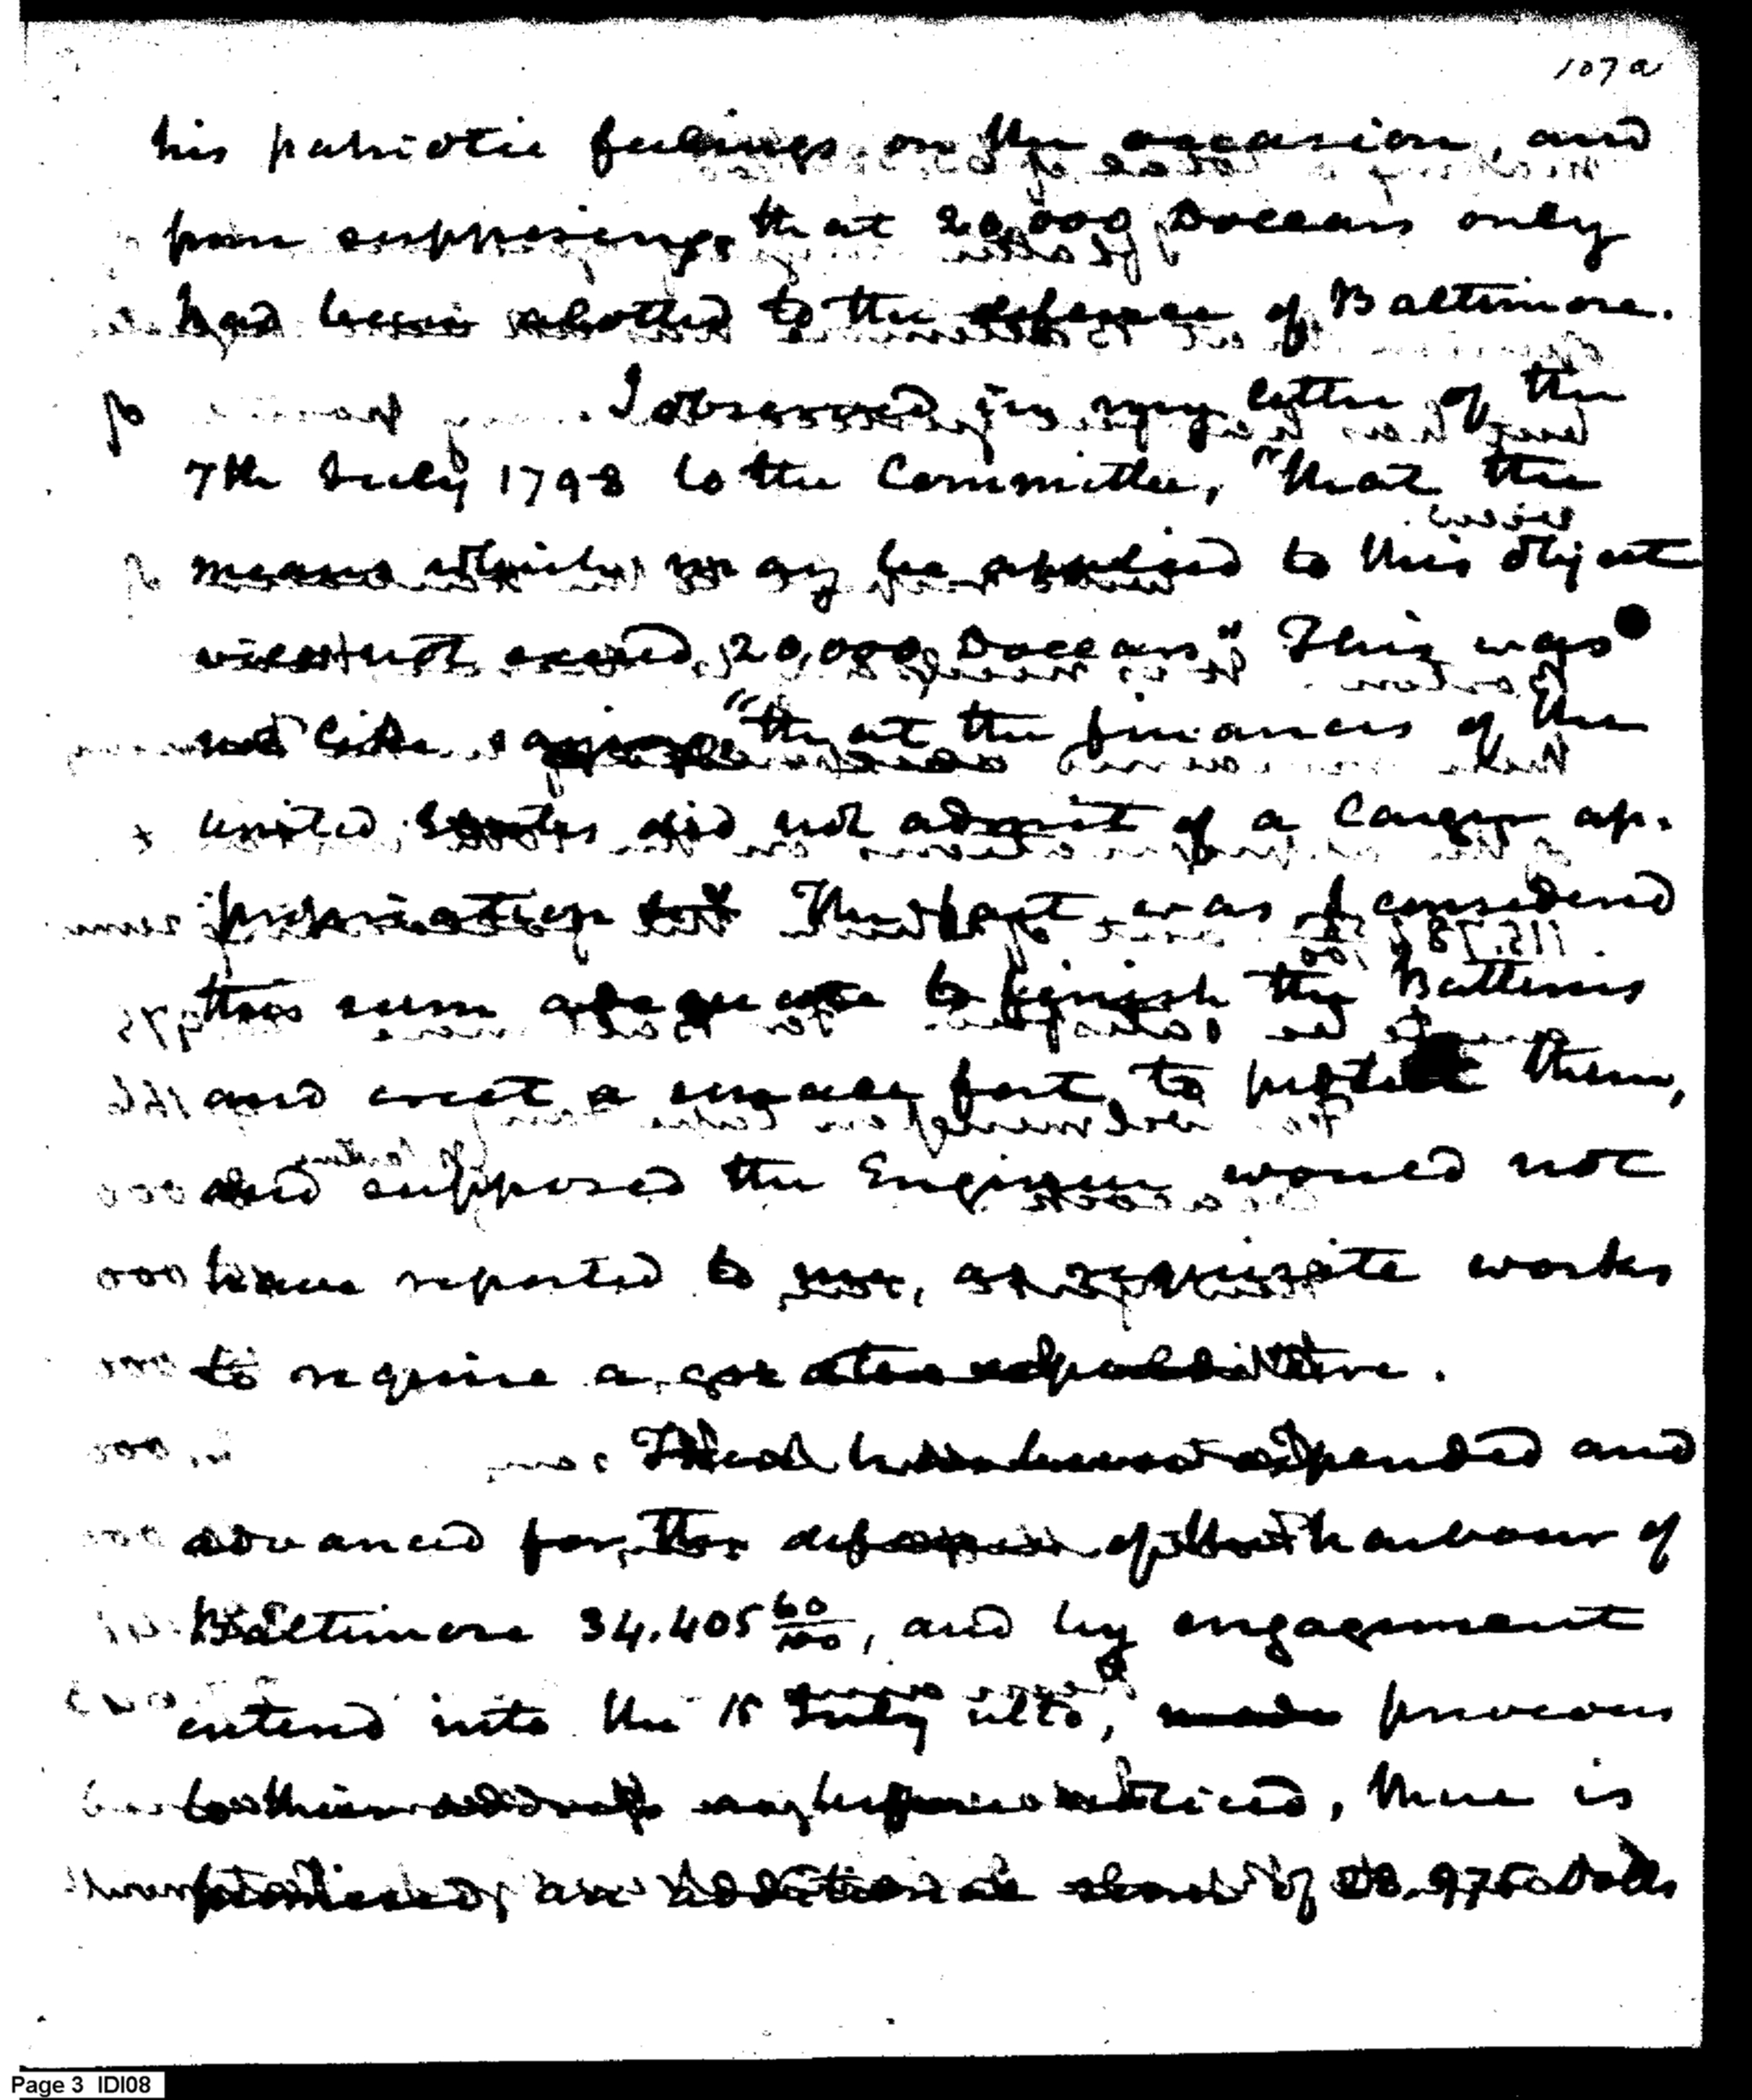 107 a
his patriotic feelings on the occasion, and
from supposing, that 20,000 Dollars only
had been alotted to the defence of Baltimore.
I observed in my letter of the
7th July 1798 to the Committee, "that the
means which may be applied to this object
will not exceed 20,000 Dollars" This was
not like saying "that the finances of the
united States did not admit of a larger ap-
propriation" The fact was I considered
this sum adequate to finish the Batteries
and erect a small fort to protect them,
and supposed the Engineer would not
have reported to me, as requisite works
to require a greater expenditure.
There has been expended and
advanced for the defence of the harbour of
Baltimore 34.405 60/100, and by engagement
entered into the 15 July ulto, made previous
to their address as before noticed, there is
promised, an additional sum of Dolls